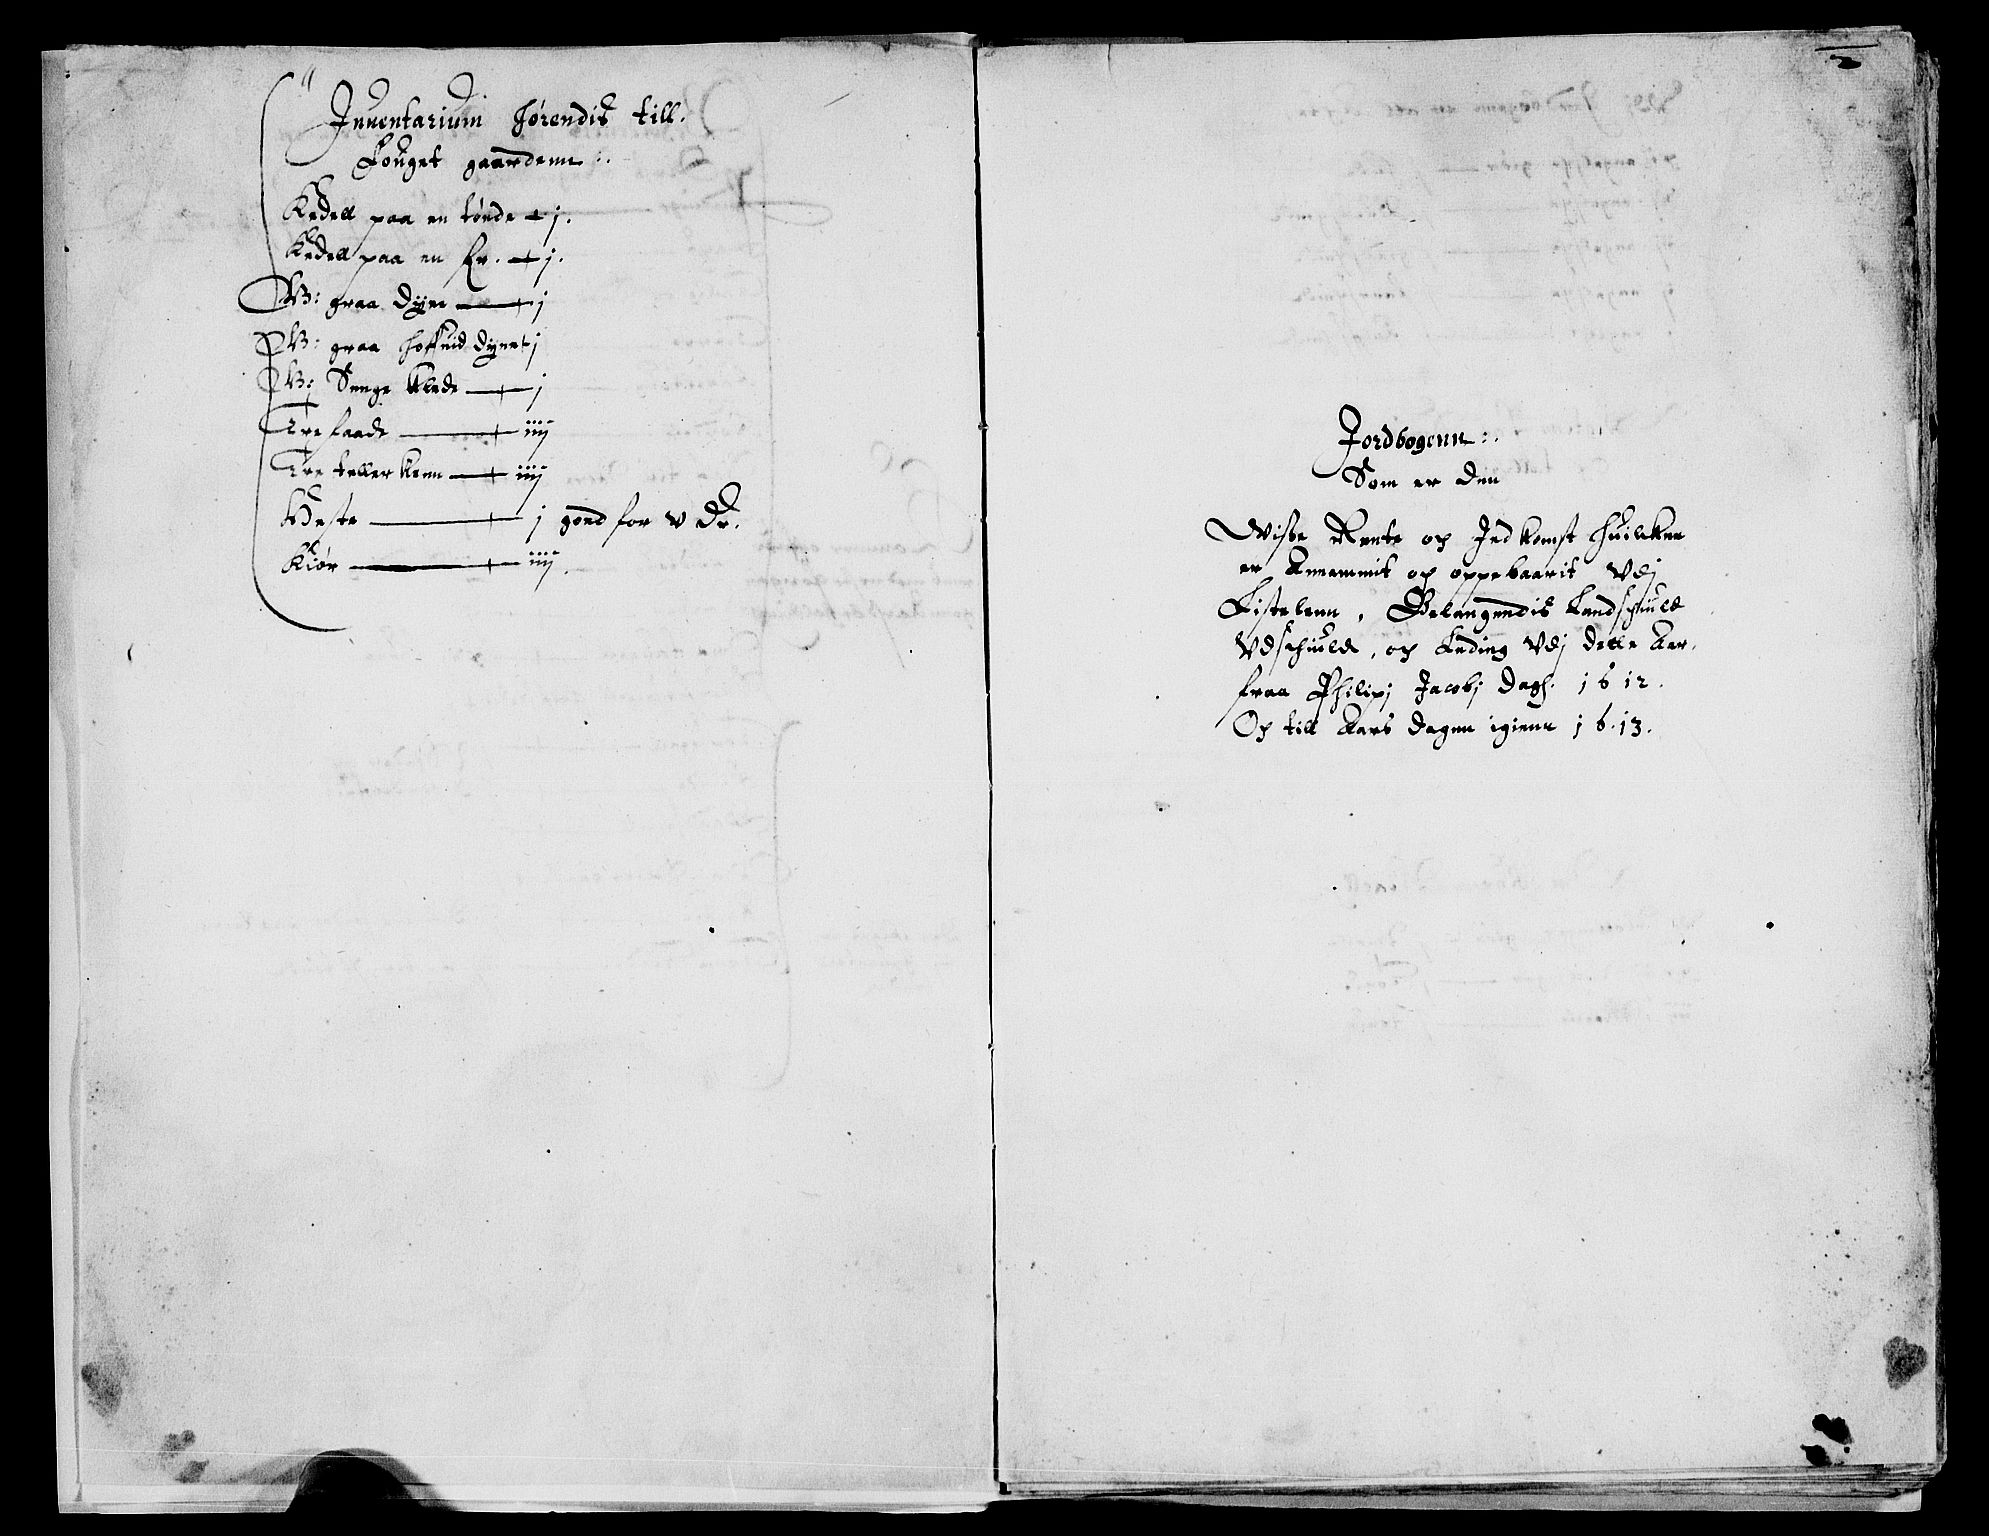 Inuentarium hørendis till.
Fouget gaardenn :.
Kedell paa en tønde + j.
Kedell paa en fr. + j.
W: graa dyne + j
W: graa hoffuid dyne + j
W: Senge klede + j
Tre faade + iiij
Tre tellerkenn + iiij
Heste + j goed for v dr.
Kiør + iiij.
2
Jordbogenn :.
Som er den
Wisse Rente och Indkomst huilcken
er Annammit och oppebaarit vdj
Listelenn, Belangendis Landschuld
Vdschuld, och Leding vdj dette Aar.
fraa Philipj Jacobj dagh. 1612.
Och till Aars dagen igienn 1613.